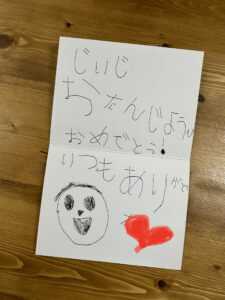 じいじ
おたんじょうび
おめでとう!
いつもありがと